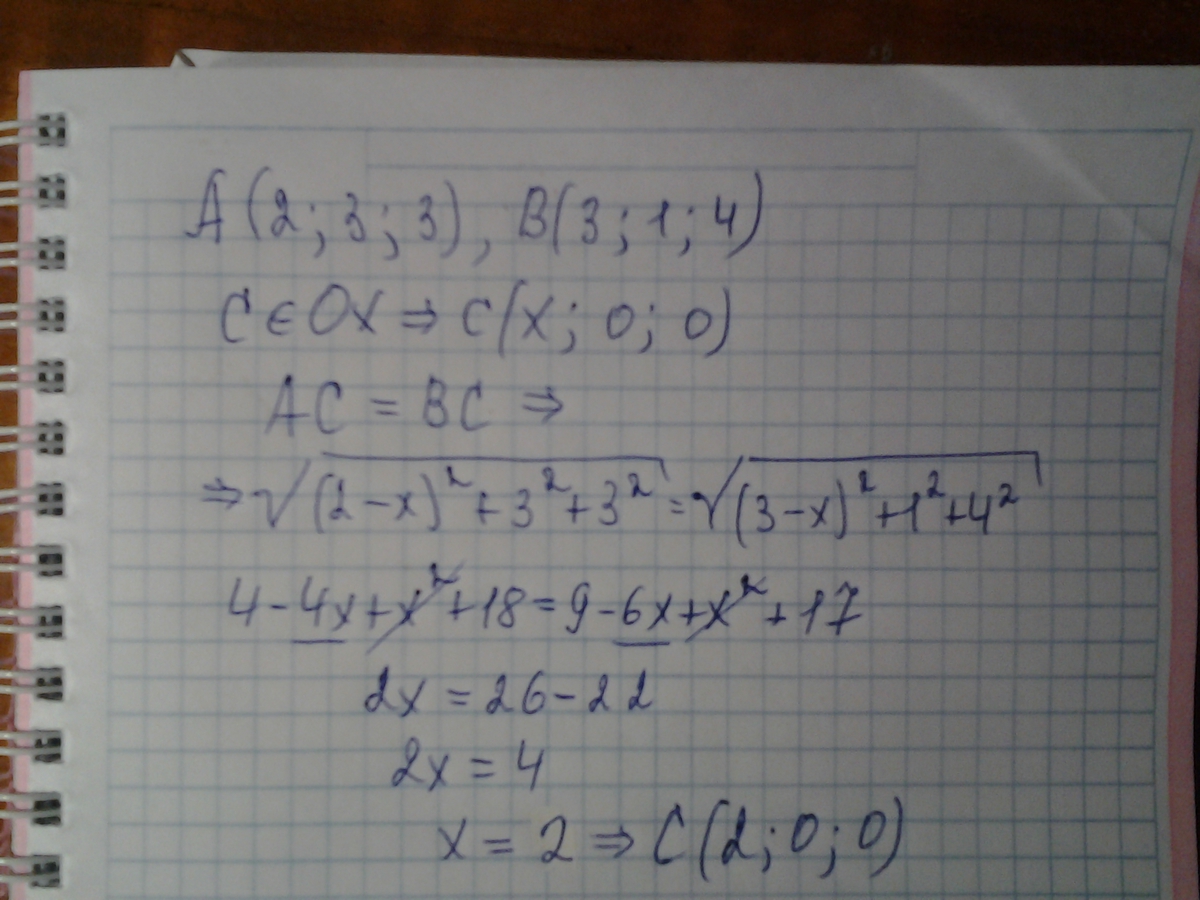 A(2; 3; 3), B(3; 1; 4)
C ∈ OX ⇒ C(x; 0; 0)
AC = BC ⇒
⇒ √((2-x)²+3²+3²) = √((3-x)²+1²+4²)
4-4x+x²+18=9-6x+x²+17
2x = 26-22
2x = 4
x = 2 ⇒ C(2; 0; 0)